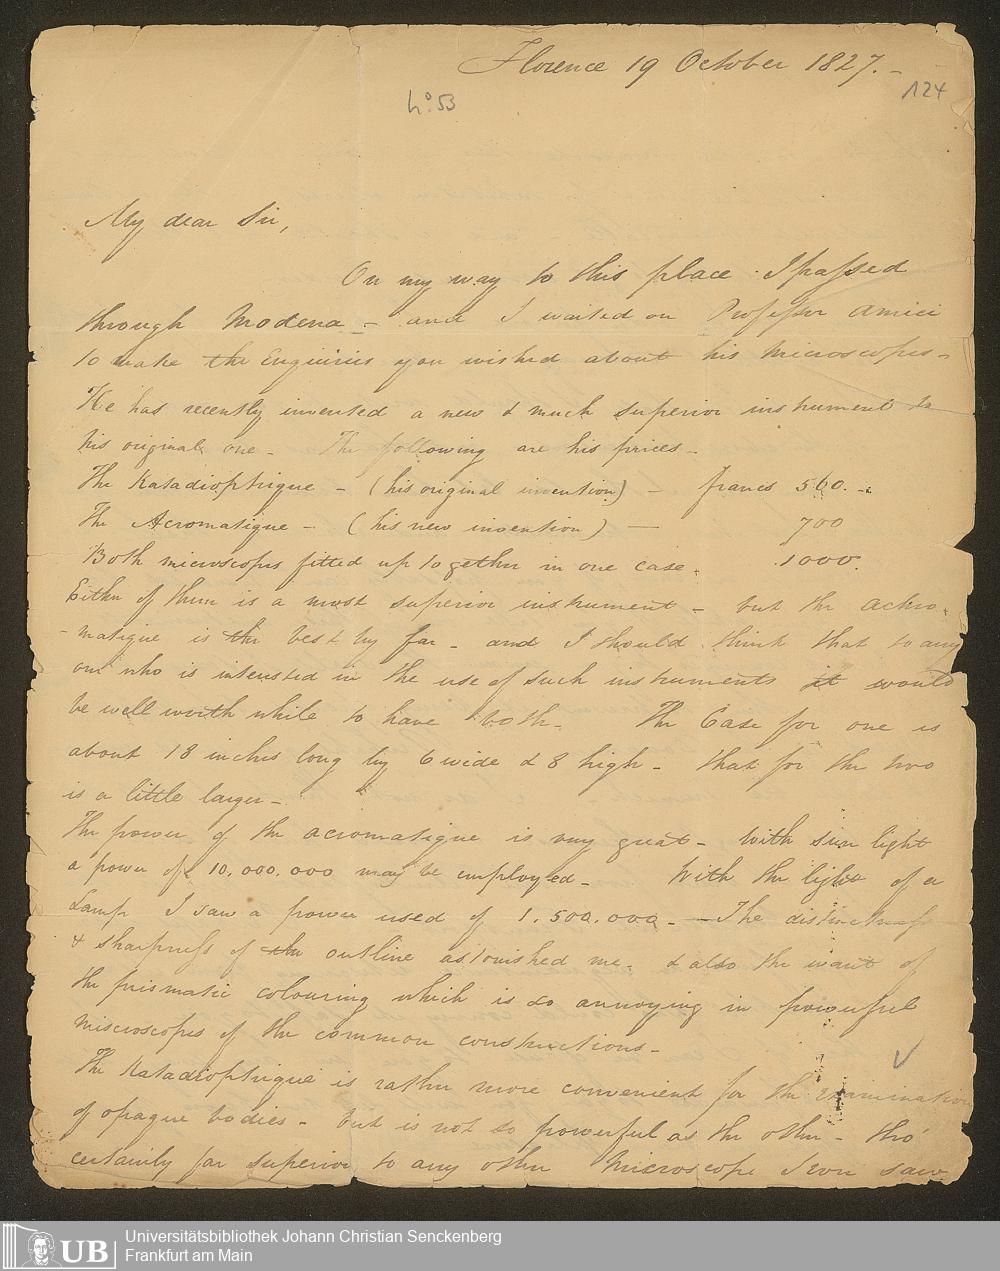 Florence 19 October 1827. -
124
No. 53
My dear Sir,
On my way to this place I passed
through Modena - and I waited on Professor Amici
to make the Enquiries you wished about his Microscopes -
He has recently invented a new & much superior instrument to
his original one - The following are his prices -
The Katadioptrique - (his original invention) - francs 560. -
The Acromatique - (his new invention) - 700
Both microscopes fitted up together in one case - 1000.
Either of them is a most superior instrument - but the Achro-
-matique is the best by far - and I should think that to any
one who is interested in the use of such instruments it would
be well worth while to have both - The Case for one is
about 18 inches long by 6 wide & 8 high - that for the two
is a little larger -
The power of the acromatique is very great - With sun light
a power of 10,000,000 may be employed - With the light of a
Lamp I saw a power used of 1,500,000 - - The distinctness
& sharpness of the outline astonished me - & also the want of
the prismatic colouring which is so annoying in powerful
miscroscopes of the common constructions -
The Katadioptrique is rather more convenient for the examination
of opaque bodies - but is not so powerful as the other - tho'
certainly far superior to any other Microscope I ever saw
UB
Universitätsbibliothek Johann Christian Senckenberg
Frankfurt am Main